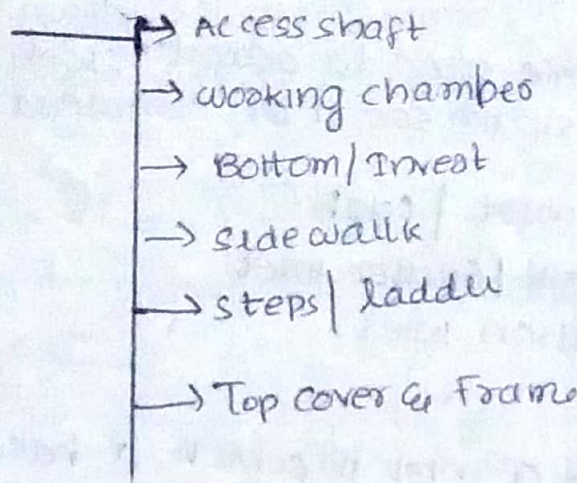 Access shaft
working chamber
Bottom / Invert
side wallk
steps | ladder
Top cover & Frame